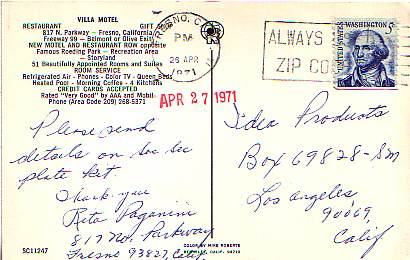 VILLA MOTEL
RESTAURANT GIFT
817 N. Parkway — Fresno, California
Freeway 99 — Belmont of Olive Exit
NEW MOTEL AND RESTAURANT ROW opposite
Famous Roeding Park — Recreation Area
— Storyland
51 Beautifully Appointed Rooms and Suites
ROOM SERVICE
Refrigerated Air - Phones - Color TV - Queen Beds
Heated Pool - Morning Coffee - 4 Kitchens
CREDIT CARDS ACCEPTED
Rated "Very Good" by AAA and Mobil
Phone (Area Code 209) 268-5371
FRESNO, C
PM
26 APR
1971
ALWAYS
ZIP CO
WASHINGTON 5¢
UNITED STATES
APR 27 1971
Please send
details on Soc Sec
plate kit.
Thank you
Rita Paganini
817 No. Parkway
Fresno 93827, Calif
Idea Products
Box 69828-SM
Los Angeles,
90069,
Calif
SC11247
COLOR BY MIKE ROBERTS
BERKELEY, CALIF. 94710